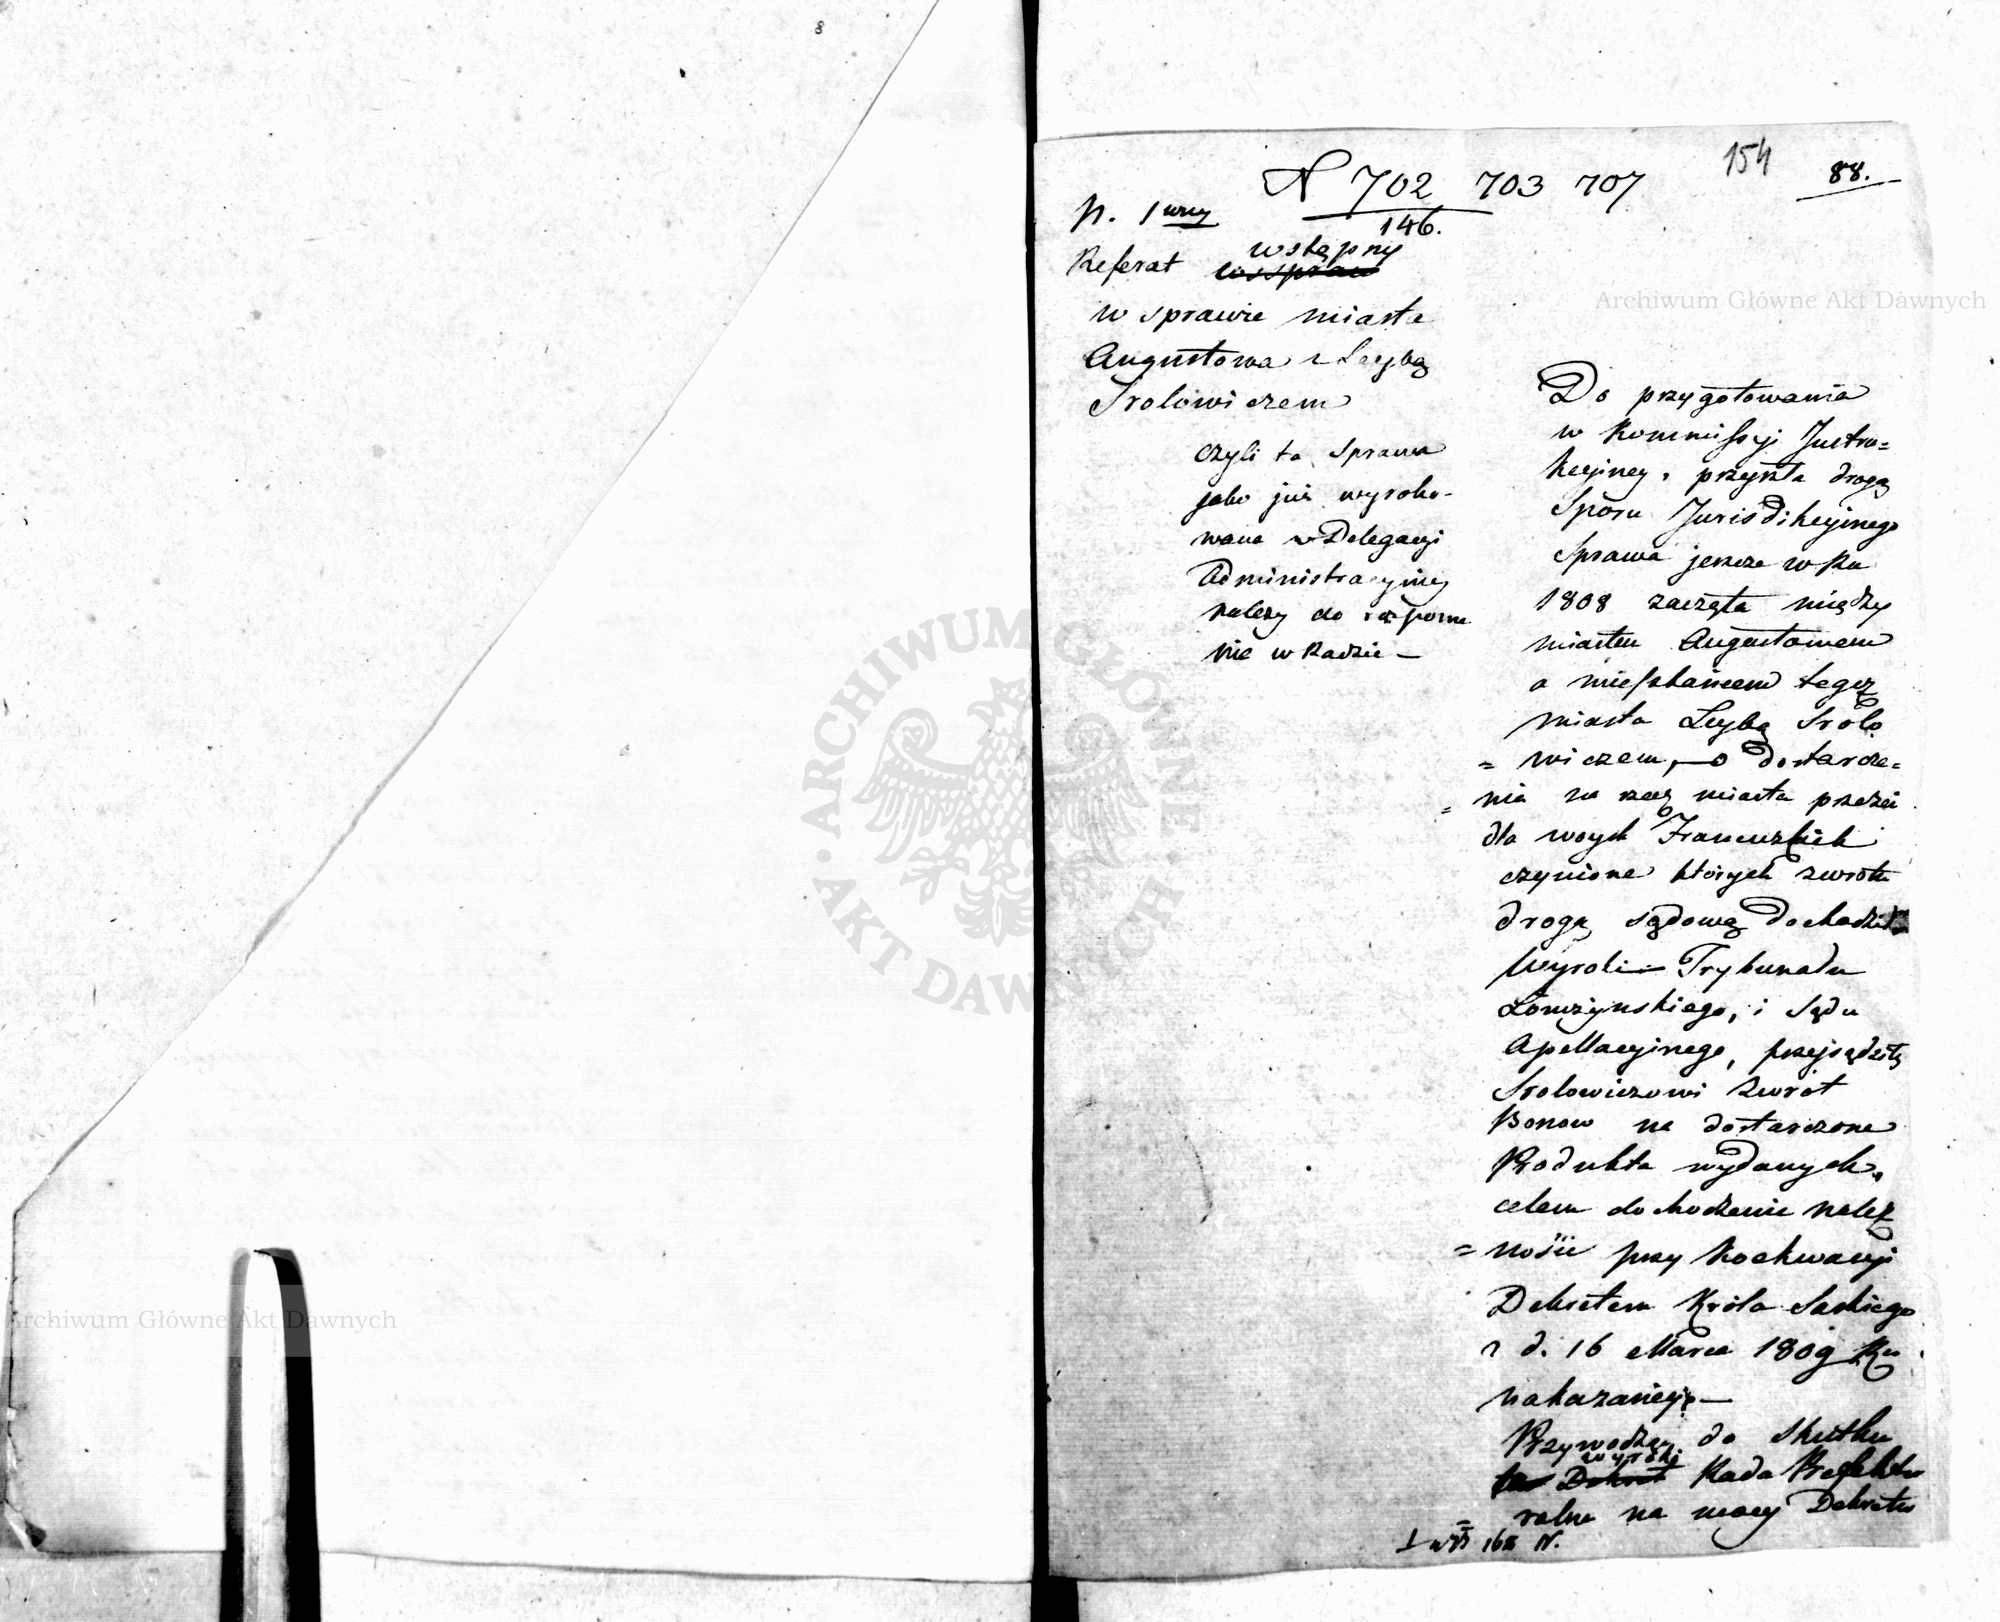 8
154
88.
N 702 703 707
146.
Referat wstępny
w sprawie miasta
Augustowa z Leybą
Srolowiczem
czyli ta sprawa
jako już wyroko-
wana w Delegacyi
Administracyiney
należy do
w Radzie —
Do przygotowania
w Kommissyi Instru=
kcyiney, przyszła drogą
Sporu Jurisdikcyinego
Sprawa jeszcze w Ru
1808 zaczęta między
miastem Augustowem
a mieszkańcem tegoż
miasta Leybą Srolo
= wiczem, — o dostarcze=
= nia na rzecz miasta przezeń
dla woysk Francuzkich
czynione których zwrotu
drogą sądową dochodził
Wyroki Trybunału
Łomżyńskiego, i Sądu
Apellacyinego, przysądziły
Srolowiczowi zwrot
Bonow na dostarczone
Produkta wydanych,
celem dochodzenia należ
= ności przy
Dekretem Króla Saskiego
z d. 16 Marca 1809 Ru
nakazaney. —
Przywodząc do skutku
wyroki
Dekret Rada Prefektu
ralna na mocy Dekretu
Archiwum Główne Akt Dawnych
Archiwum Główne Akt Dawnych
ARCHIWUM GŁÓWNE AKT DAWNYCH